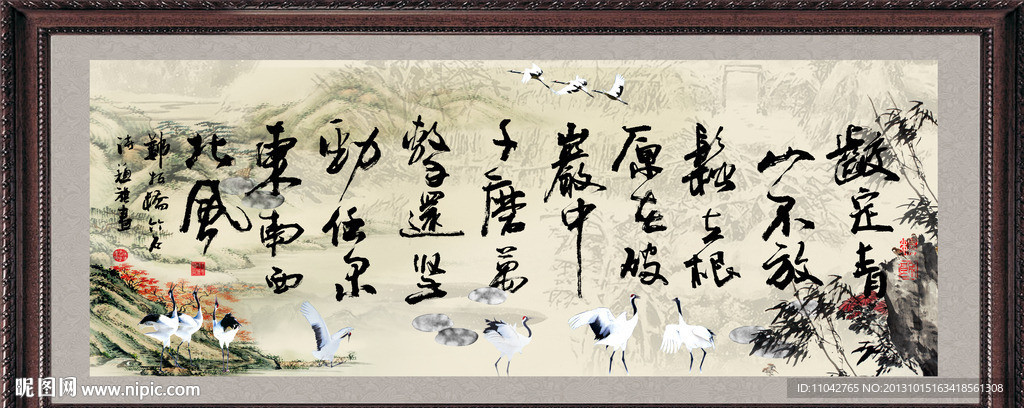 齩定青
山不放
鬆立根
原在破
巖中
千磨萬
擊還堅
勁任尔
東南西
北風
鄭板橋竹石
昵图网 www.nipic.com
ID:11042765 NO:20131015163418561308